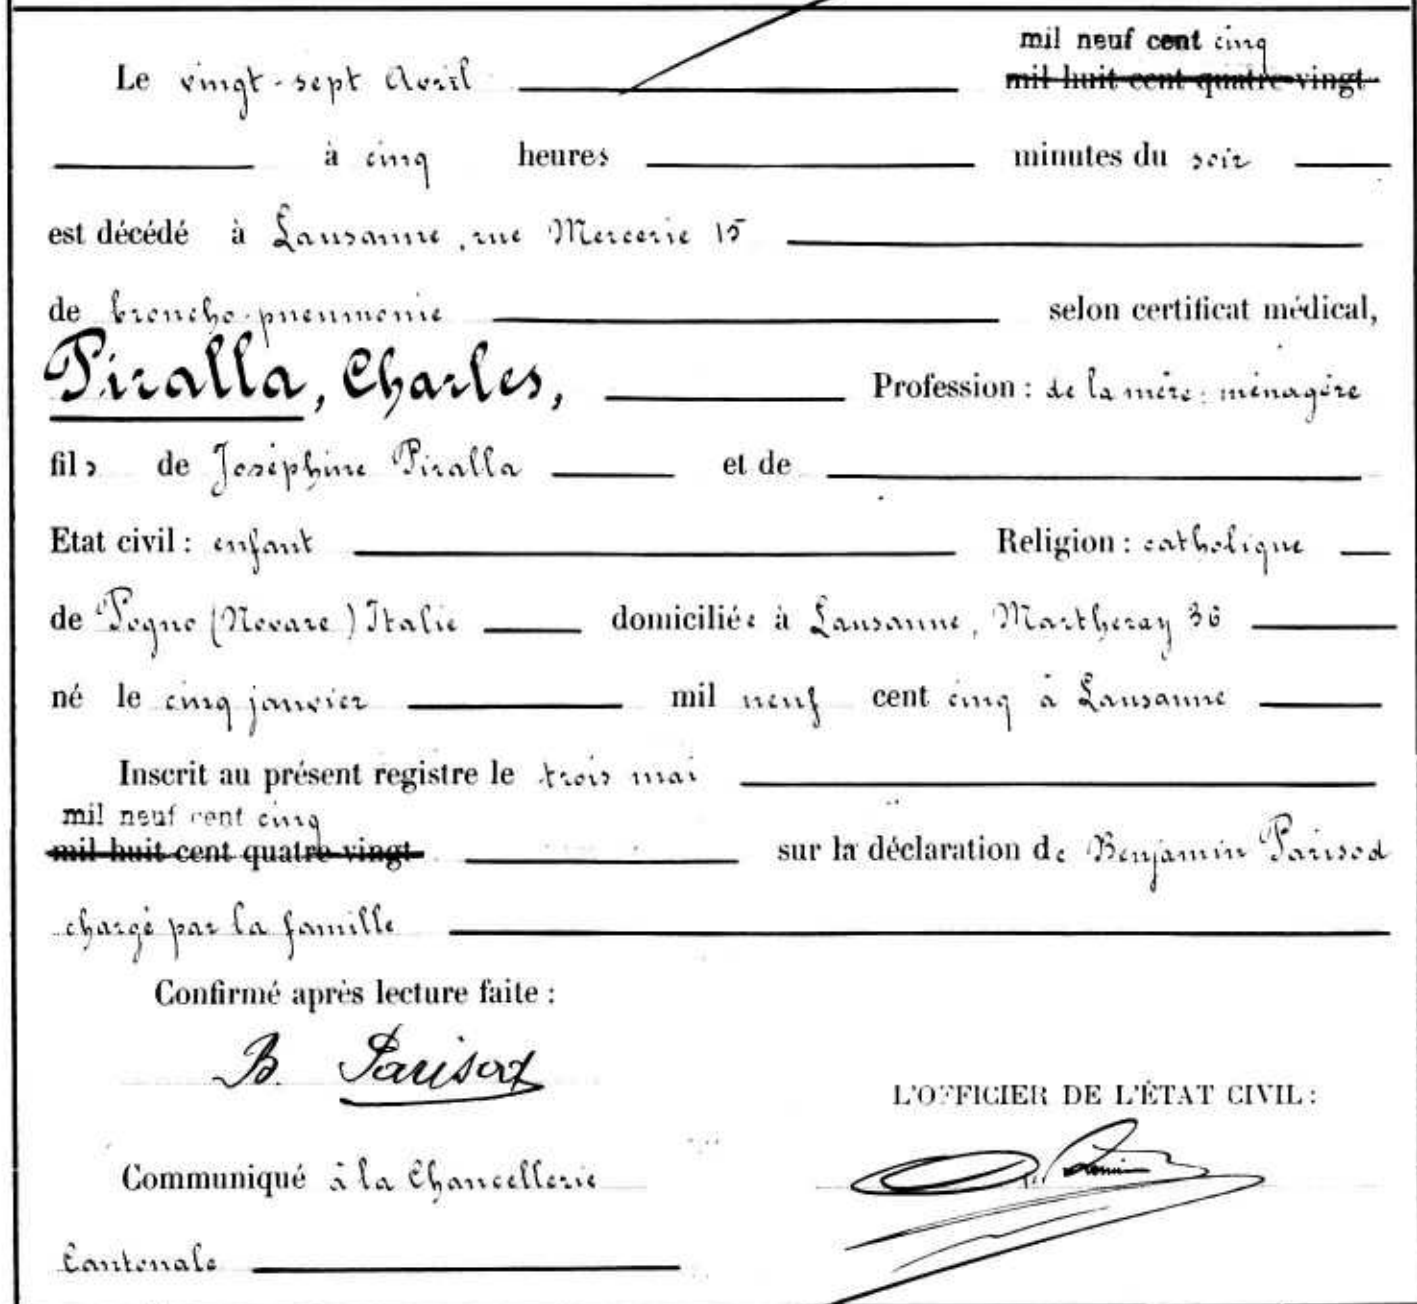 mil neuf cent cinq
Le vingt-sept Avril mil huit cent quatre-vingt
à cinq heures minutes du soir
est décédé à Lausanne, rue Mercerie 15
de broncho-pneumonie selon certificat médical,
Piralla, Charles, Profession : de la mère : ménagère
fils de Joséphine Piralla et de
Etat civil : enfant Religion : catholique
de Pogno (Novare) Italie domiciliée à Lausanne, Martheray 36
né le cinq janvier mil neuf cent cinq à Lausanne
Inscrit au présent registre le trois mai
mil neuf cent cinq
mil huit cent quatre-vingt sur la déclaration de Benjamin Parisod
chargé par la famille
Confirmé après lecture faite :
B. Parisod
L'OFFICIER DE L'ÉTAT CIVIL :
Communiqué à la Chancellerie
Cantonale